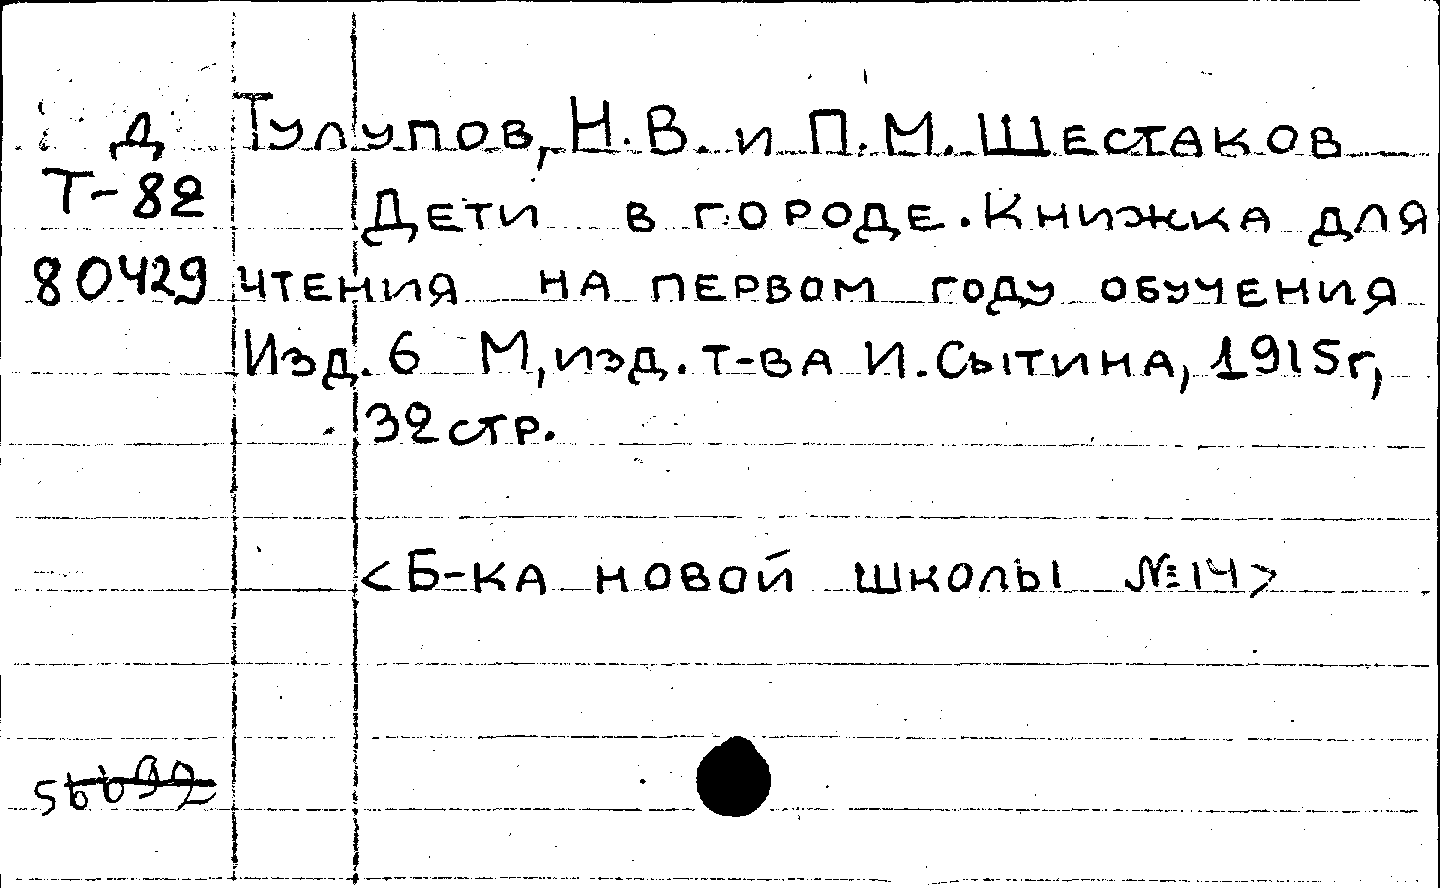 Д Тулупов, Н.В. и П.М. Шестаков
Т-82 Дети в городе. Книжка для
80429 чтения на первом году обучения
Изд. 6 М, изд. т-ва И. Сытина, 1915г,
32 стр.
<Б-ка новой школы №14>
56692